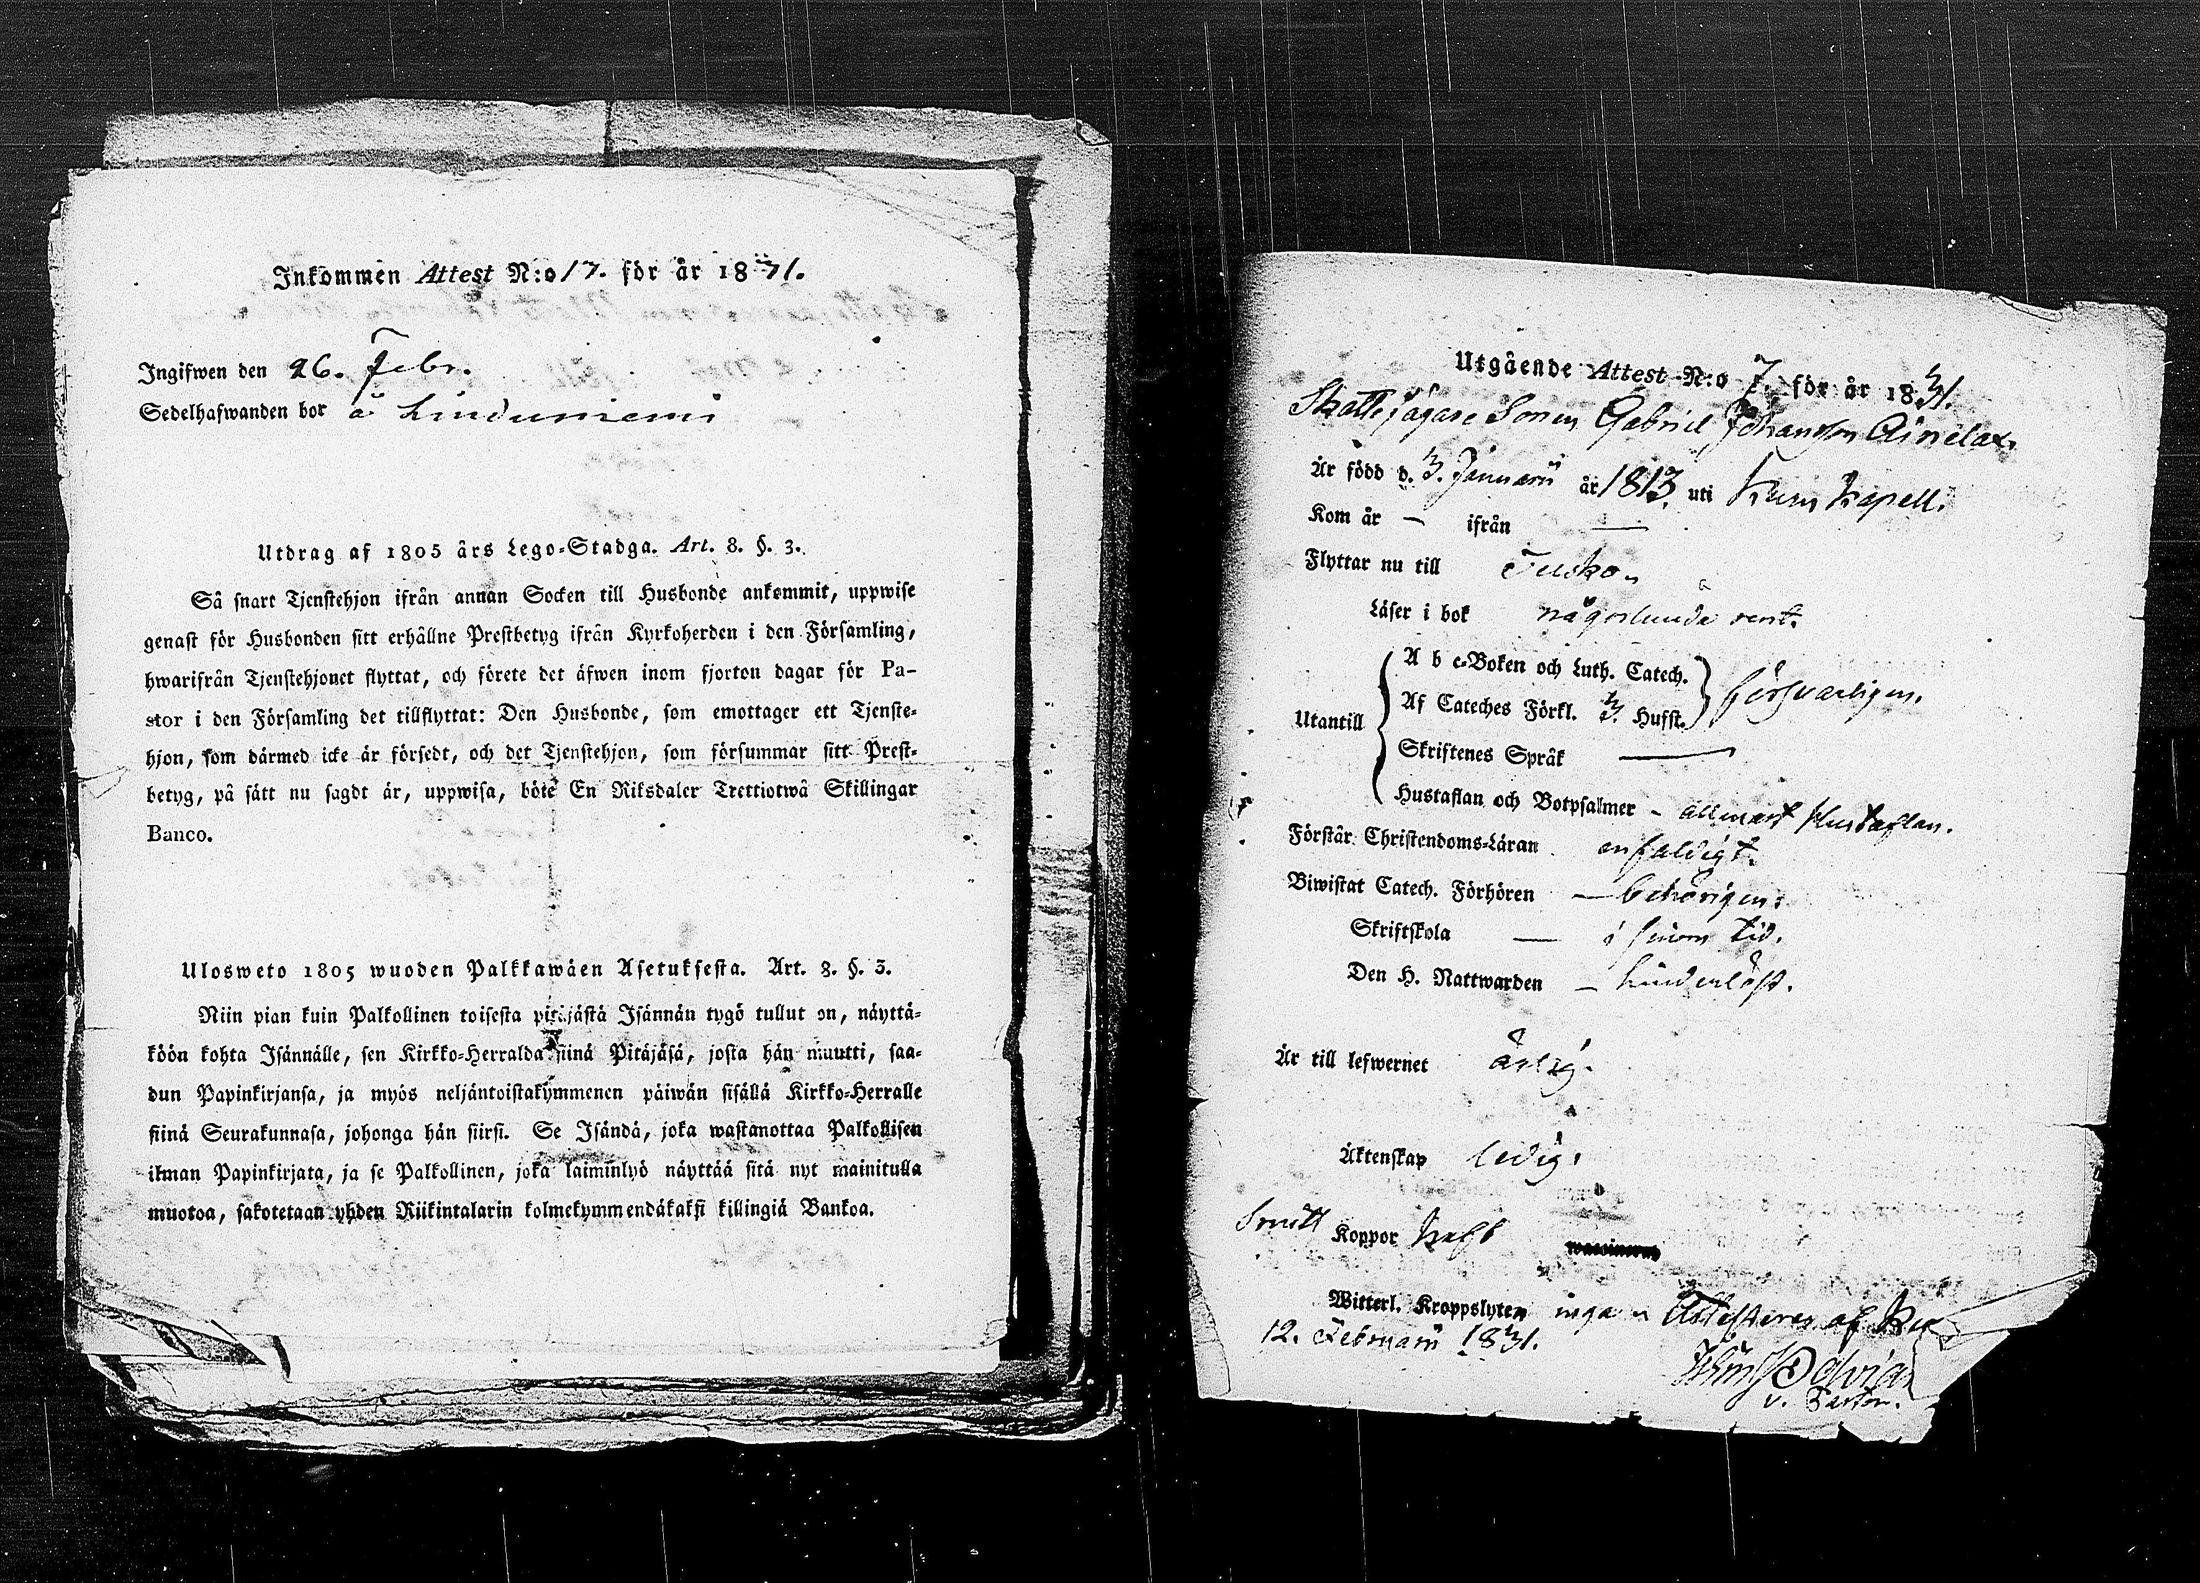 Inkommen Attest N:o 17. för år 1831.
Ingifwen den 26. Febr.
Sedelhafwanden bor å Linduniemi
Utdrag af 1805 års Lego-Stadga. Art. 8. §. 3.
Så snart Tjenstehjon ifrån annan Socken till Husbonde ankommit, uppwise
genast för Husbonden sitt erhållne Prestbetyg ifrån Kyrkoherden i den Församling,
hwarifrån Tjenstehjonet flyttat, och förete det äfwen inom fjorton dagar för Pa-
stor i den Församling det tillflyttat: Den Husbonde, som emottager ett Tjenste-
hjon, som därmed icke är försedt, och det Tjenstehjon, som försummar sitt Prest-
betyg, på sätt nu sagdt är, uppwisa, böte En Riksdaler Trettiotwå Skillingar
Banco.
Ulosweto 1805 wuoden Palkkawäen Asetuksesta. Art. 8. §. 3.
Niin pian kuin Palkollinen toisesta pitäjästä Isännän tygö tullut on, näyttä-
köön kohta Isännälle, sen Kirkko-Herralda siinä Pitäjäsä, josta hän muutti, saa-
dun Papinkirjansa, ja myös neljäntoistakymmenen päiwän sisällä Kirkko-Herralle
siinä Seurakunnasa, johonga hän siirsi. Se Isändä, joka wastanottaa Palkollisen
ilman Papinkirjata, ja se Palkollinen, joka laiminlyö näyttää sitä nyt mainitulla
muotoa, sakotetaan yhden Riikintalarin kolmekymmendäkaksi killingiä Bankoa.
Utgående Attest N:o 7. för år 1831.
Skattejägare Sonen Gabriel Johansson
Är född d. 3. Januarii år 1813 uti Kapell.
Kom år — ifrån —
Flyttar nu till
Läser i bok någorlunda rent.
Utantill
A b c-Boken och Luth. Catech.
Af Cateches Förkl. 3. Hufst. försvarligen.
Skriftenes Språk —
Hustaflan och Botpsalmer - allenast Hustaflan.
Förstår Christendoms-Läran enfaldigt.
Biwistat Catech. Förhören — behörigen.
Skriftskola — i sinom tid.
Den H. Nattwarden — hinderlöst.
Är till lefwernet ärlig.
Äktenskap ledig.
Koppor haft waccinerad
Witterl. Kroppslyten inga - Attesteras af
12. Februarii 1831.
v. Pastor.